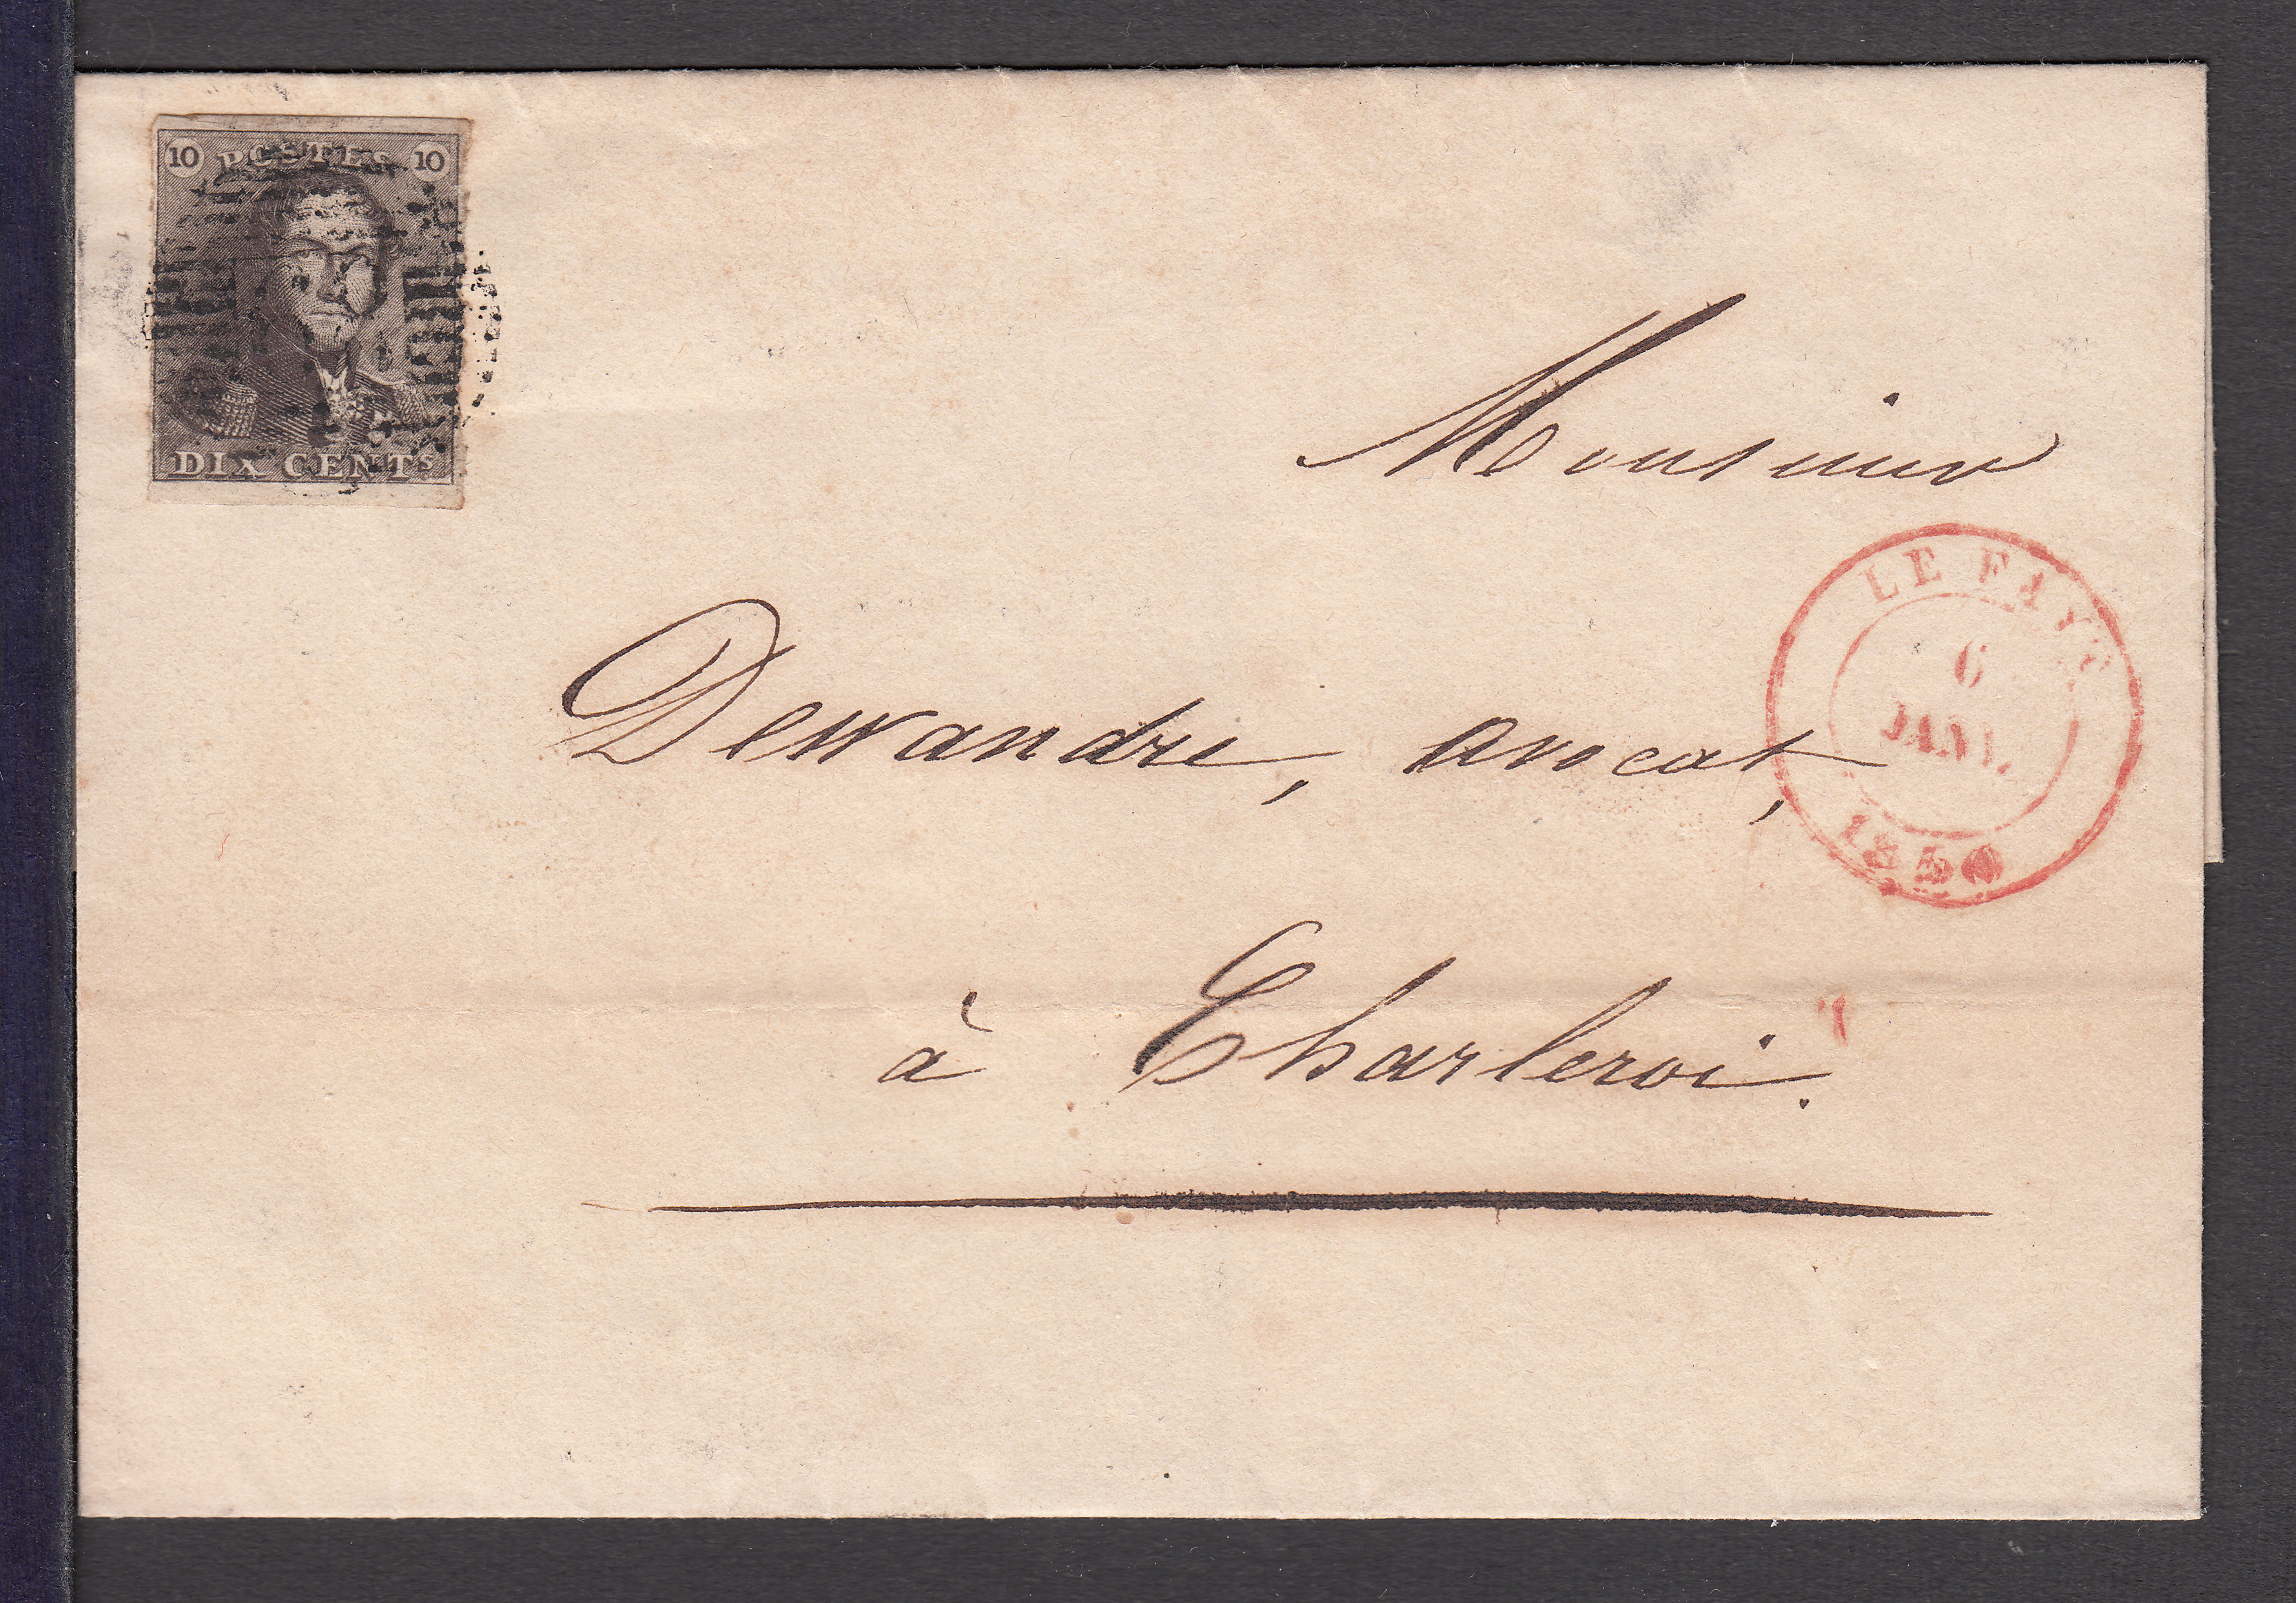 10 POSTES 10
DIX CENTS
Monsieur
LE FAYT
6
JANV.
1850
Dewandre, avocat,
à Charleroi.